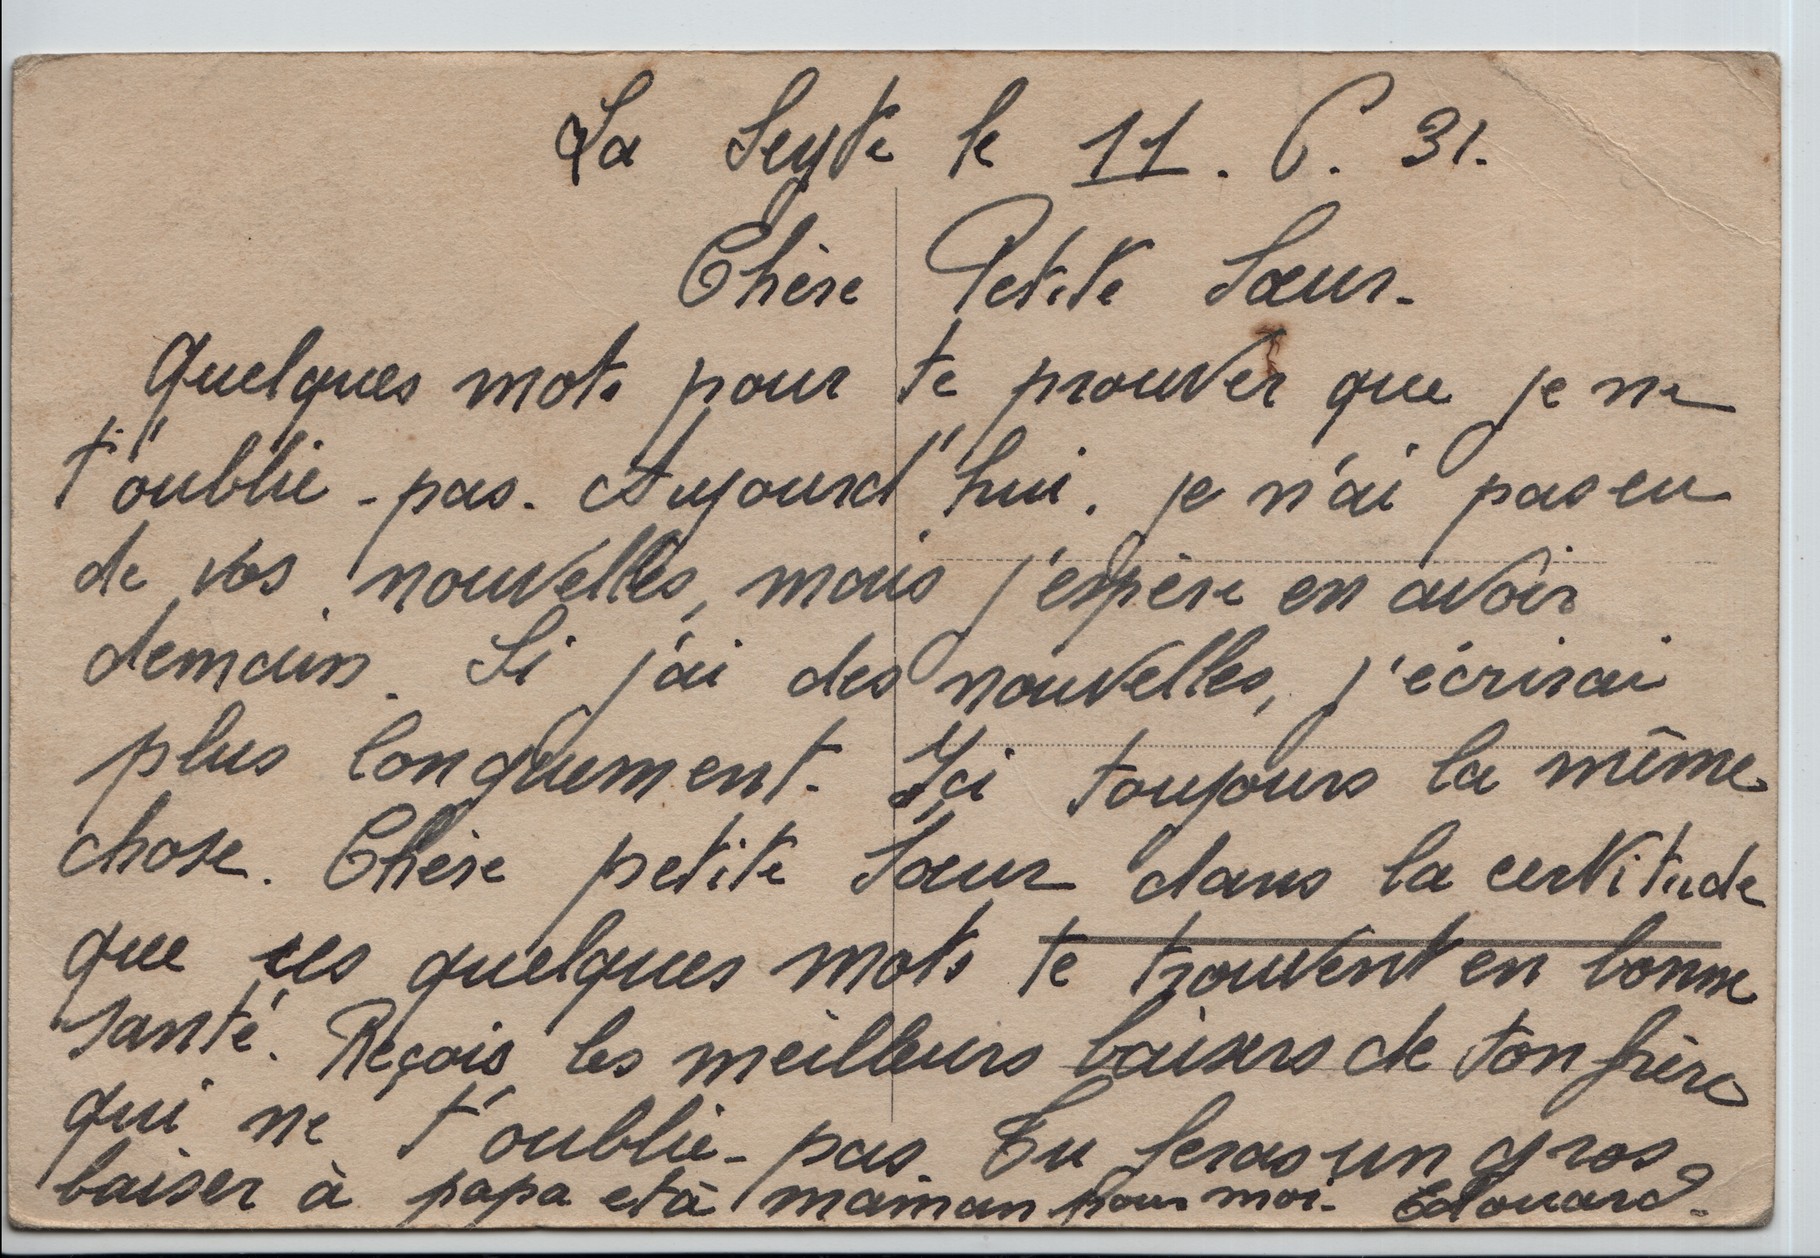 La Seyne le 11. 6. 31.
Chère Petite Sœur.
Quelques mots pour te prouver que je ne
t'oublie - pas. Aujourd'hui. je n'ai pas eu
de vos nouvelles, mais j'espère en avoir
demain. Si j'ai des nouvelles, j'écrirai
plus longuement. Ici toujours la même
chose. Chère petite Sœur dans la certitude
que ces quelques mots te trouvent en bonne
santé. Reçois les meilleurs baisers de ton frère
qui ne t'oublie - pas. Tu feras un gros
baiser à papa et à maman pour moi. Edouard.